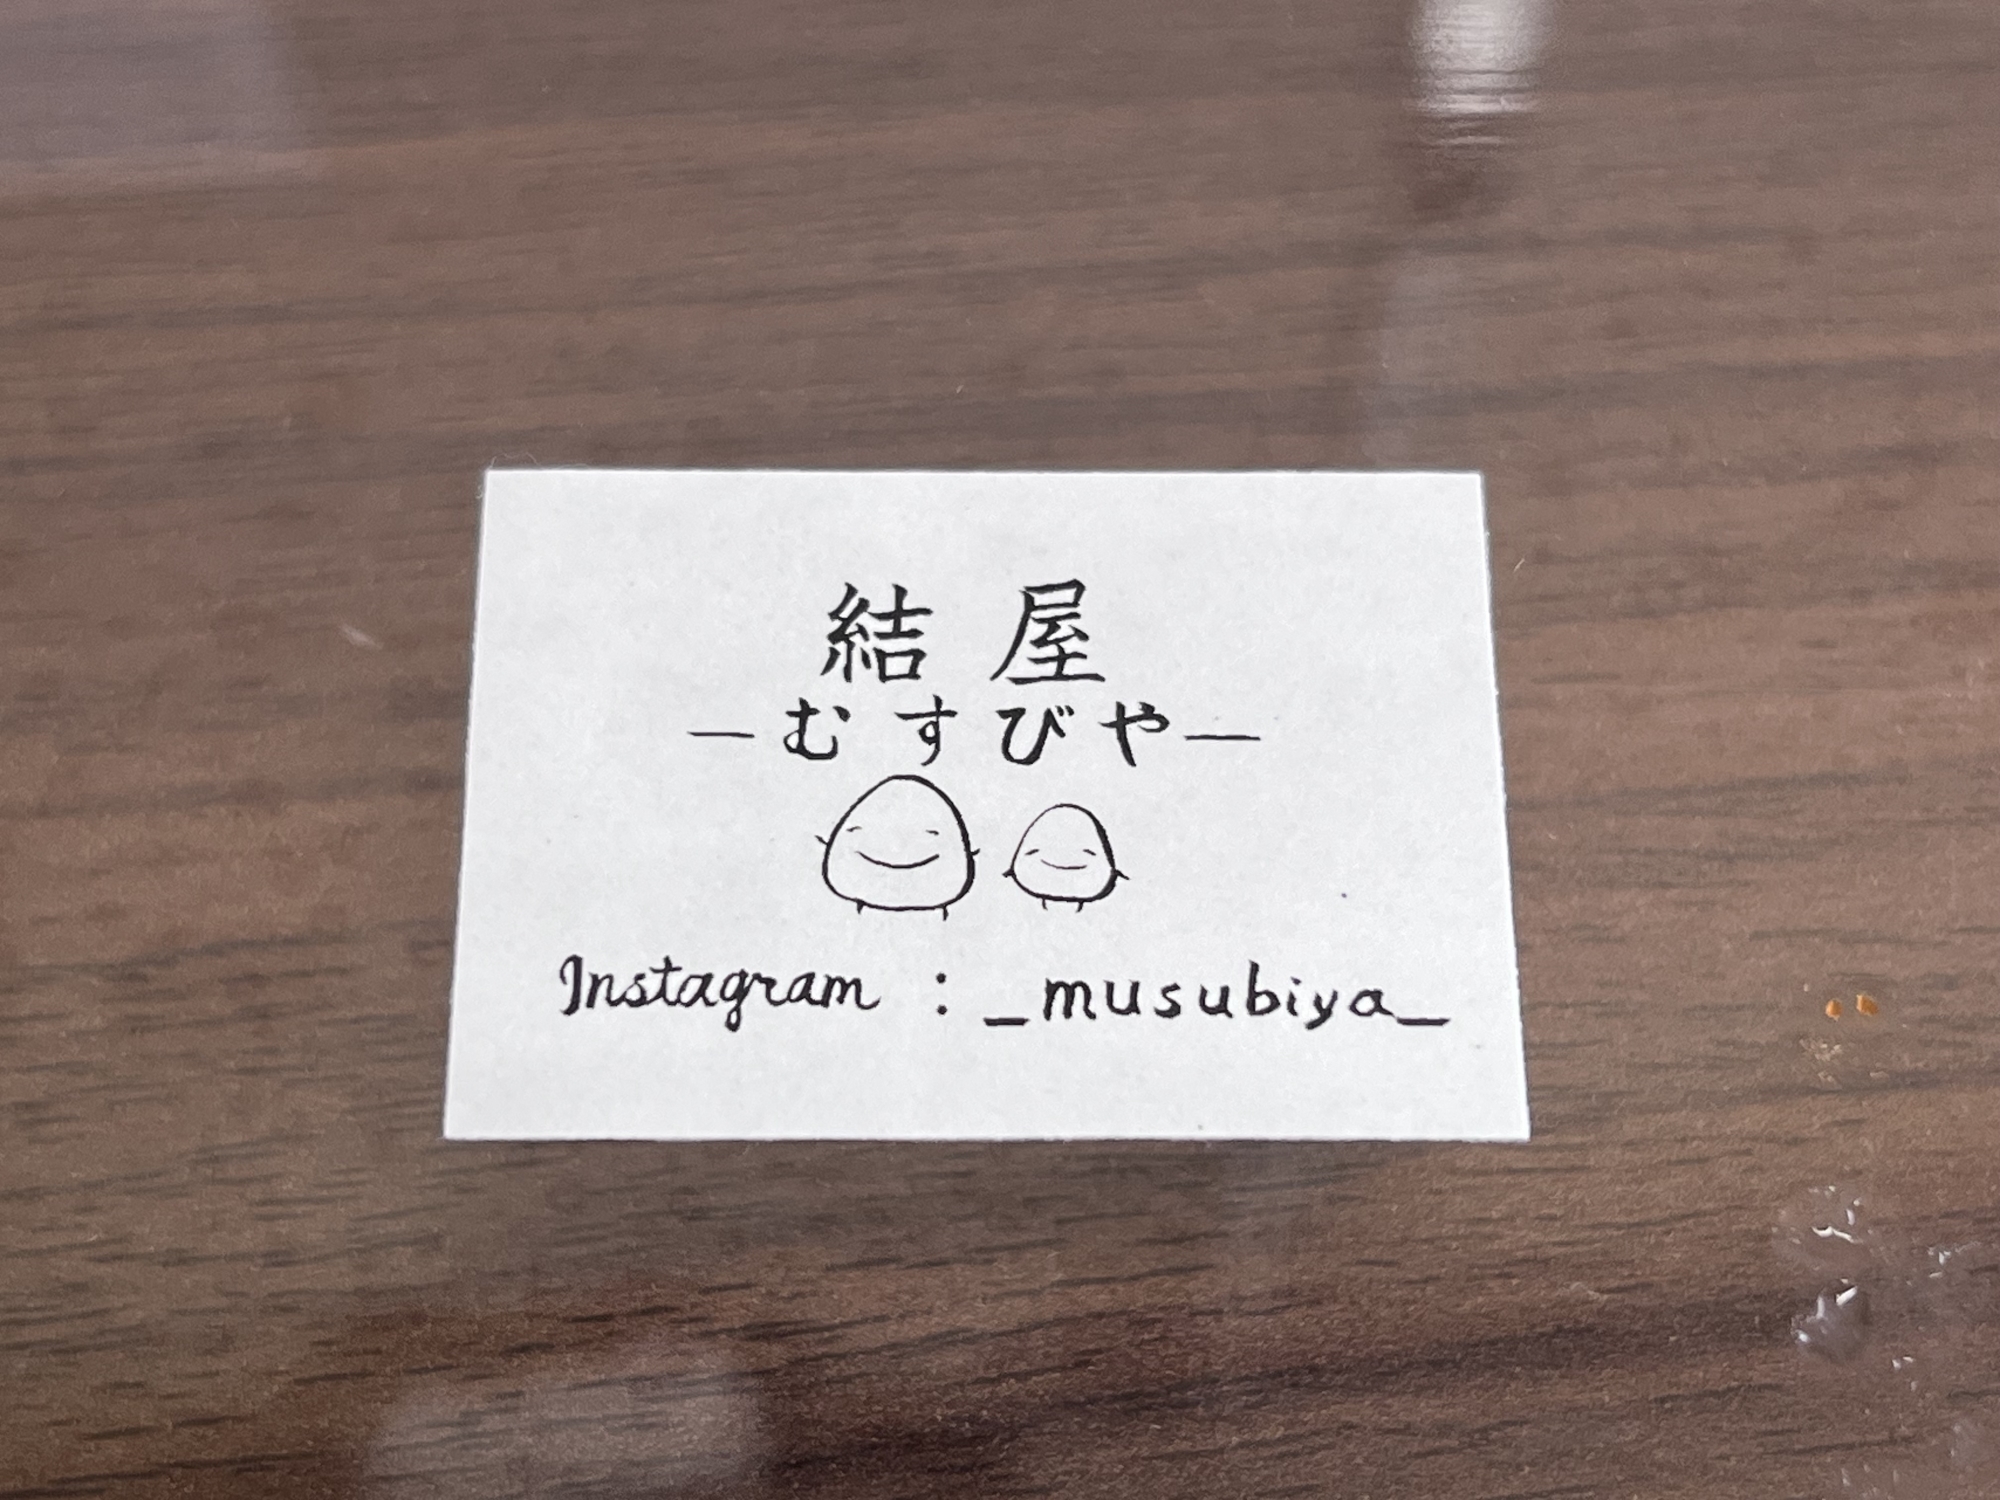 結屋
―むすびや―
Instagram : _musubiya_